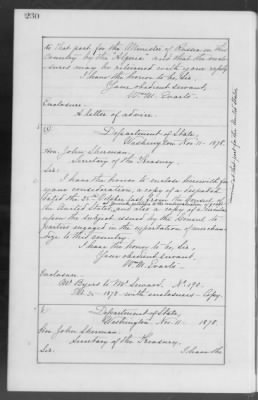 230
to that port, for the Minister of Russia in this
country by the and that the enclo-
sures may be returned with your reply.
I have the honor to be, Sir,
Your obedient servant,
Wm. M. Evarts.
Enclosure.
A letter of advice.
Department of State,
Washington Nov 11- 1878.
Hon. John Sherman,
Secretary of the Treasury.
Sir:
I have the honor to enclose herewith for
your consideration, a copy of a despatch
dated the 25th October last from the Consul of
the United States
and also a copy of a circular
upon the subject issued by the Consul to
parties engaged in the exportation of merchan-
dize to this country.
I have the honor to be, Sir,
Your obedient servant,
Wm. M. Evarts.
Enclosure.
Mr Byers to Mr Seward. No 190.
1878 with enclosures. Copy.
Department of State,
Washington Nov. 11- 1878.
Hon John Sherman.
Secretary of the Treasury.
Sir.
I have the